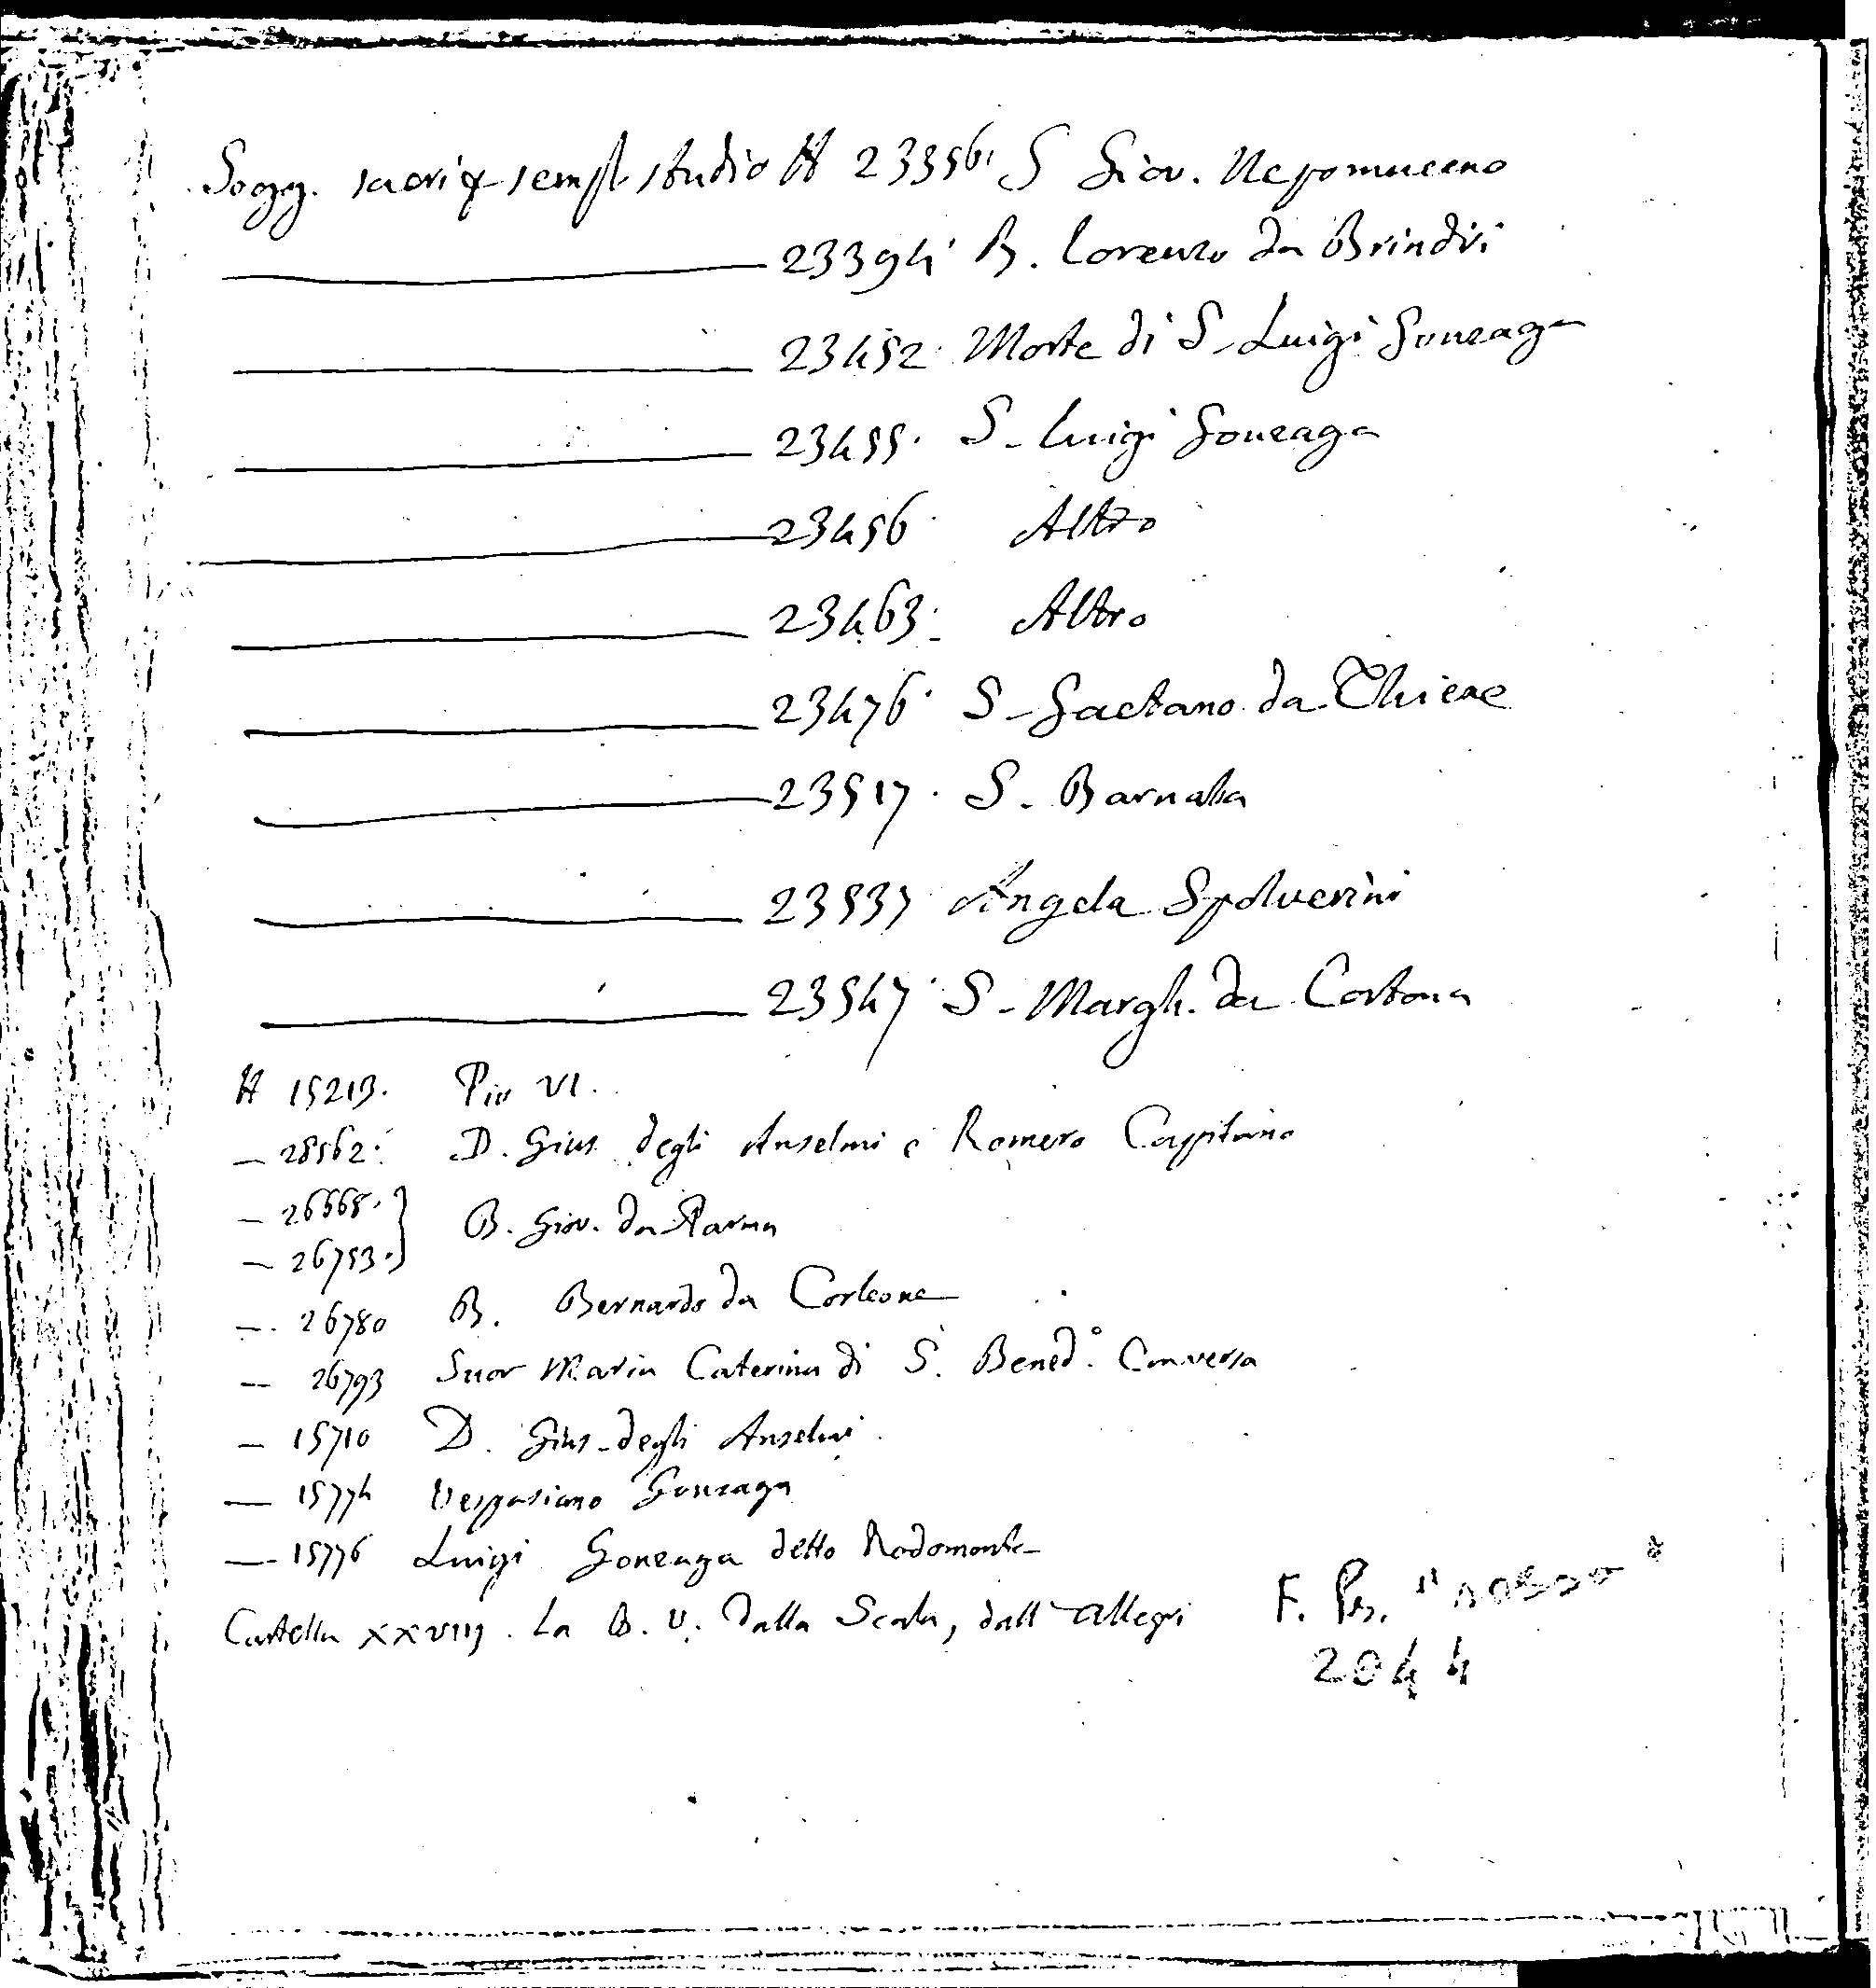 Sogg. sacri p sempl. studio N 23356. S Giov. Nepomuceno
23394. B. Lorenzo da Brindisi
23452. Morte di S. Luigi Gonzaga
23455. S. Luigi Gonzaga
23456. Altro
23463. Altro
23476. S. Gaetano da Thiene
23517. S. Barnaba
23537 Angela Spolverini
23547. S. Margh. da Cortona
N 15213. Pio VI.
— 28562. D. Gius. degli Anselmi e Romero Capitano
— 26668. } B. Giov. da Parma
— 26753. }
— 26780 B. Bernardo da Corleone
— 26793 Suor Maria Caterina di S. Bened.º Conversa
— 15710 D. Gius. degli Anselmi
— 15774 Vespasiano Gonzaga
— 15776 Luigi Gonzaga detto Rodomonte
Cartella XXVIII. La B. V. dalla Scala, dall Allegri
F.
2044